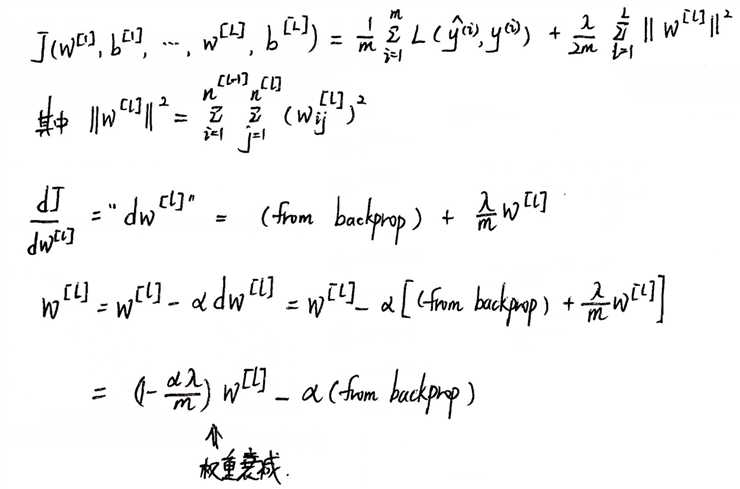 J(w^[1], b^[1], ..., w^[L], b^[L]) = 1/m Σ_{i=1}^{m} L(ŷ^(i), y^(i)) + λ/2m Σ_{l=1}^{L} ||w^[l]||²
其中 ||w^[l]||² = Σ_{i=1}^{n^[l-1]} Σ_{j=1}^{n^[l]} (w_ij^[l])²
dJ/dw^[l] = "dw^[l]" = (from backprop) + λ/m w^[l]
w^[l] = w^[l] - α dw^[l] = w^[l] - α[(from backprop) + λ/m w^[l]]
= (1-αλ/m) w^[l] - α(from backprop)
⇑
权重衰减.